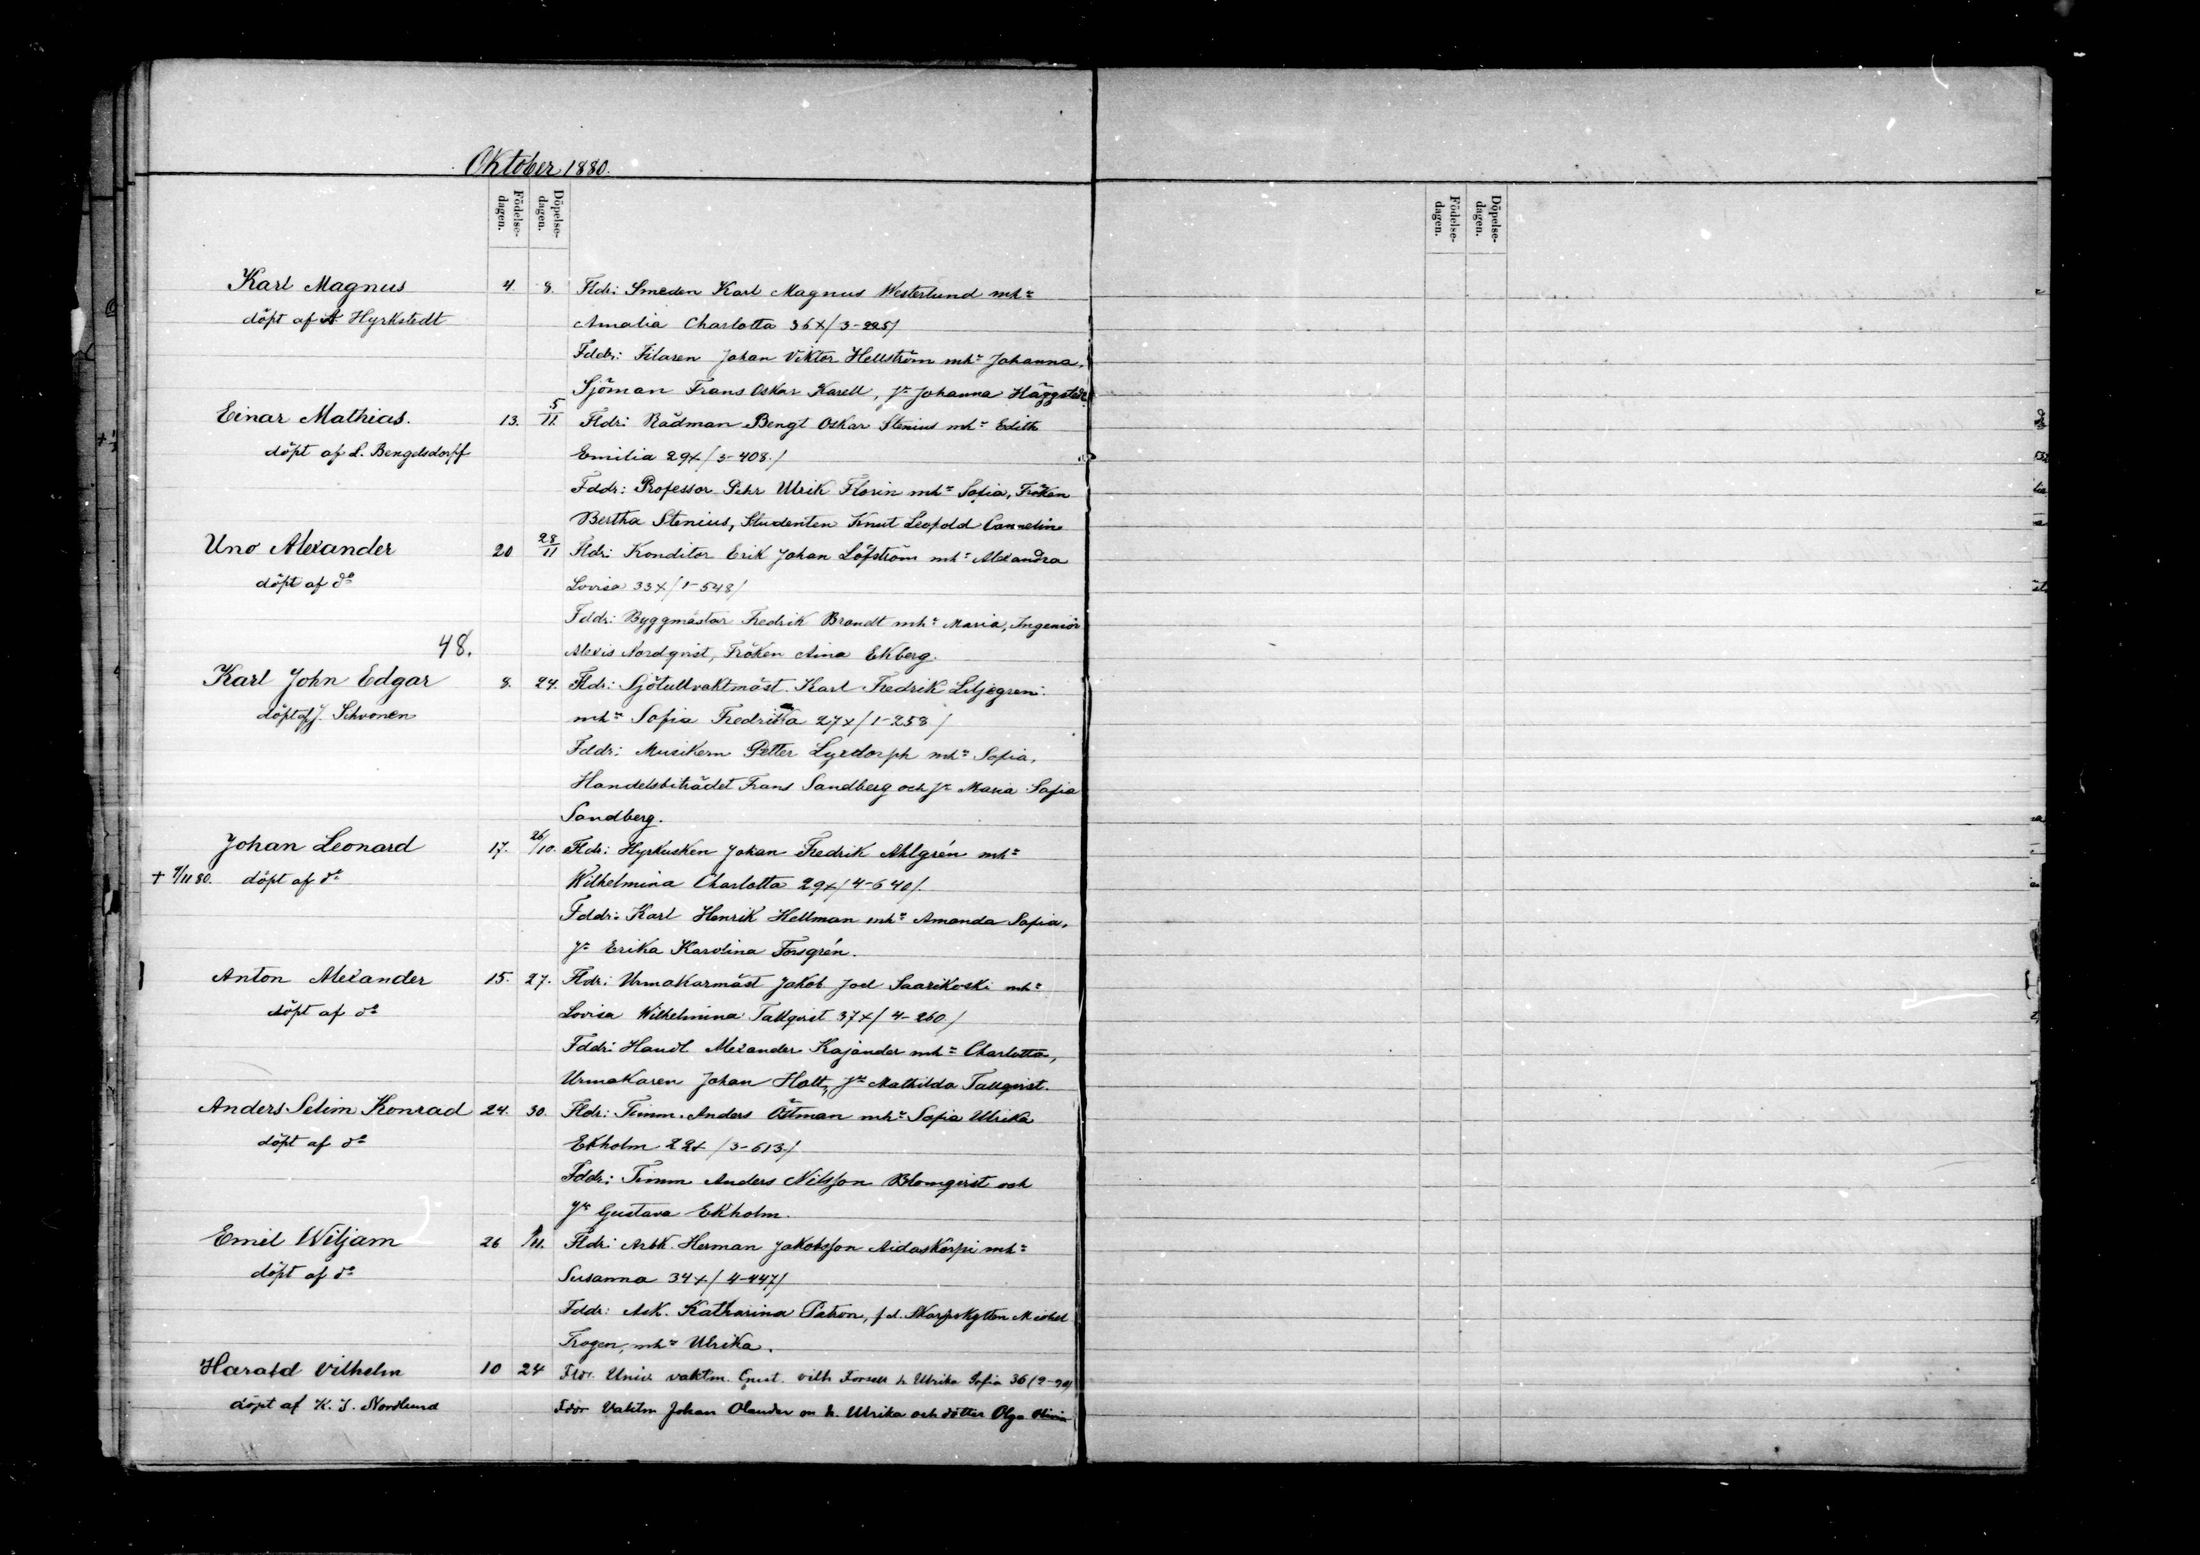 Oktober 1880.
Födelse-
dagen.
Döpelse-
dagen.
Födelse-
dagen.
Döpelse-
dagen.
Karl Magnus 4 8. Fldr: Smeden Karl Magnus Westerlund mh:
döpt af A Hyrkstedt Amalia Charlotta 36 x/3-225/
Fddr: Filaren Johan Viktor Hellström mh: Johanna,
Sjöman Frans Oskar Karell, Jn Johanna Häggstedt
Einar Mathias. 13. 5/11. Fldr: Rådman Bengt Oskar Stenius mh: Edith
döpt af L. Bengelsdorff Emilia 29x/3-408./
Fddr: Professor Pehr Ulrik Florin mh: Sofia, Fröken
Bertha Stenius, Studenten Knut Leopold Cannelin
Uno Alexander 20 28/11 Fldr: Konditor Erik Johan Löfström mh: Alexandra
döpt af do Lovisa 33x/1-548/
Fddr: Byggmästar Fredrik Brandt mh: Maria, Ingeniör
48. Alexis Nordqvist, Fröken Aina Ekberg.
Karl John Edgar 8. 24. Fldr: Sjötullvaktmäst. Karl Fredrik Liljegren
döpt af J. Schvonen mh: Sofia Fredrika 27x/1-258/
Fddr: Musikern Petter Lyxdorph mh: Sofia,
Handelsbiträdet Frans Sandberg och Jn Maria Sofia
Sandberg.
Johan Leonard 17. 26/10. Fldr: Hyrkusken Johan Fredrik Ahlgrén mh:
+ 9/11 80. döpt af do Wilhelmina Charlotta 29x/4-640/.
Fddr: Karl Henrik Hellman mh: Amanda Sofia,
Jn Erika Karolina Forsgrén.
Anton Alexander 15. 27. Fldr: Urmakarmäst Jakob Joel Saarikoski mh:
döpt af do Lovisa Wilhelmina Tallqvist 37x/4-260/
Fddr: Handl. Alexander Kajander mh: Charlotta,
Urmakaren Johan Holt, Jn Mathilda Tallqvist.
Anders Selim Konrad 24. 30. Fldr: Timm. Anders Östman mh: Sofia Ulrika
döpt af do Ekholm 22x/3-613/
Fddr: Timm Anders Nilsson Blomqvist och
Jn Gustava Ekholm.
Emil Wiljam 26 1/11. Fldr: Arbk. Herman Jakobsson Aidaskorpi mh:
döpt af do Susanna 34x/4-447/
Fddr: Ask. Katharina Patron, f d. Skarpskytten Michel
Trogen, mh: Ulrika.
Harald Vilhelm 10 24 Fldr. Univ. vaktm. Gust. Vilh Forsell h Ulrika Sofia 36 (2-90)
döpt af K. J. Nordlund Fddr Vaktm Johan Olander o h. Ulrika och dotter Olga Olivia